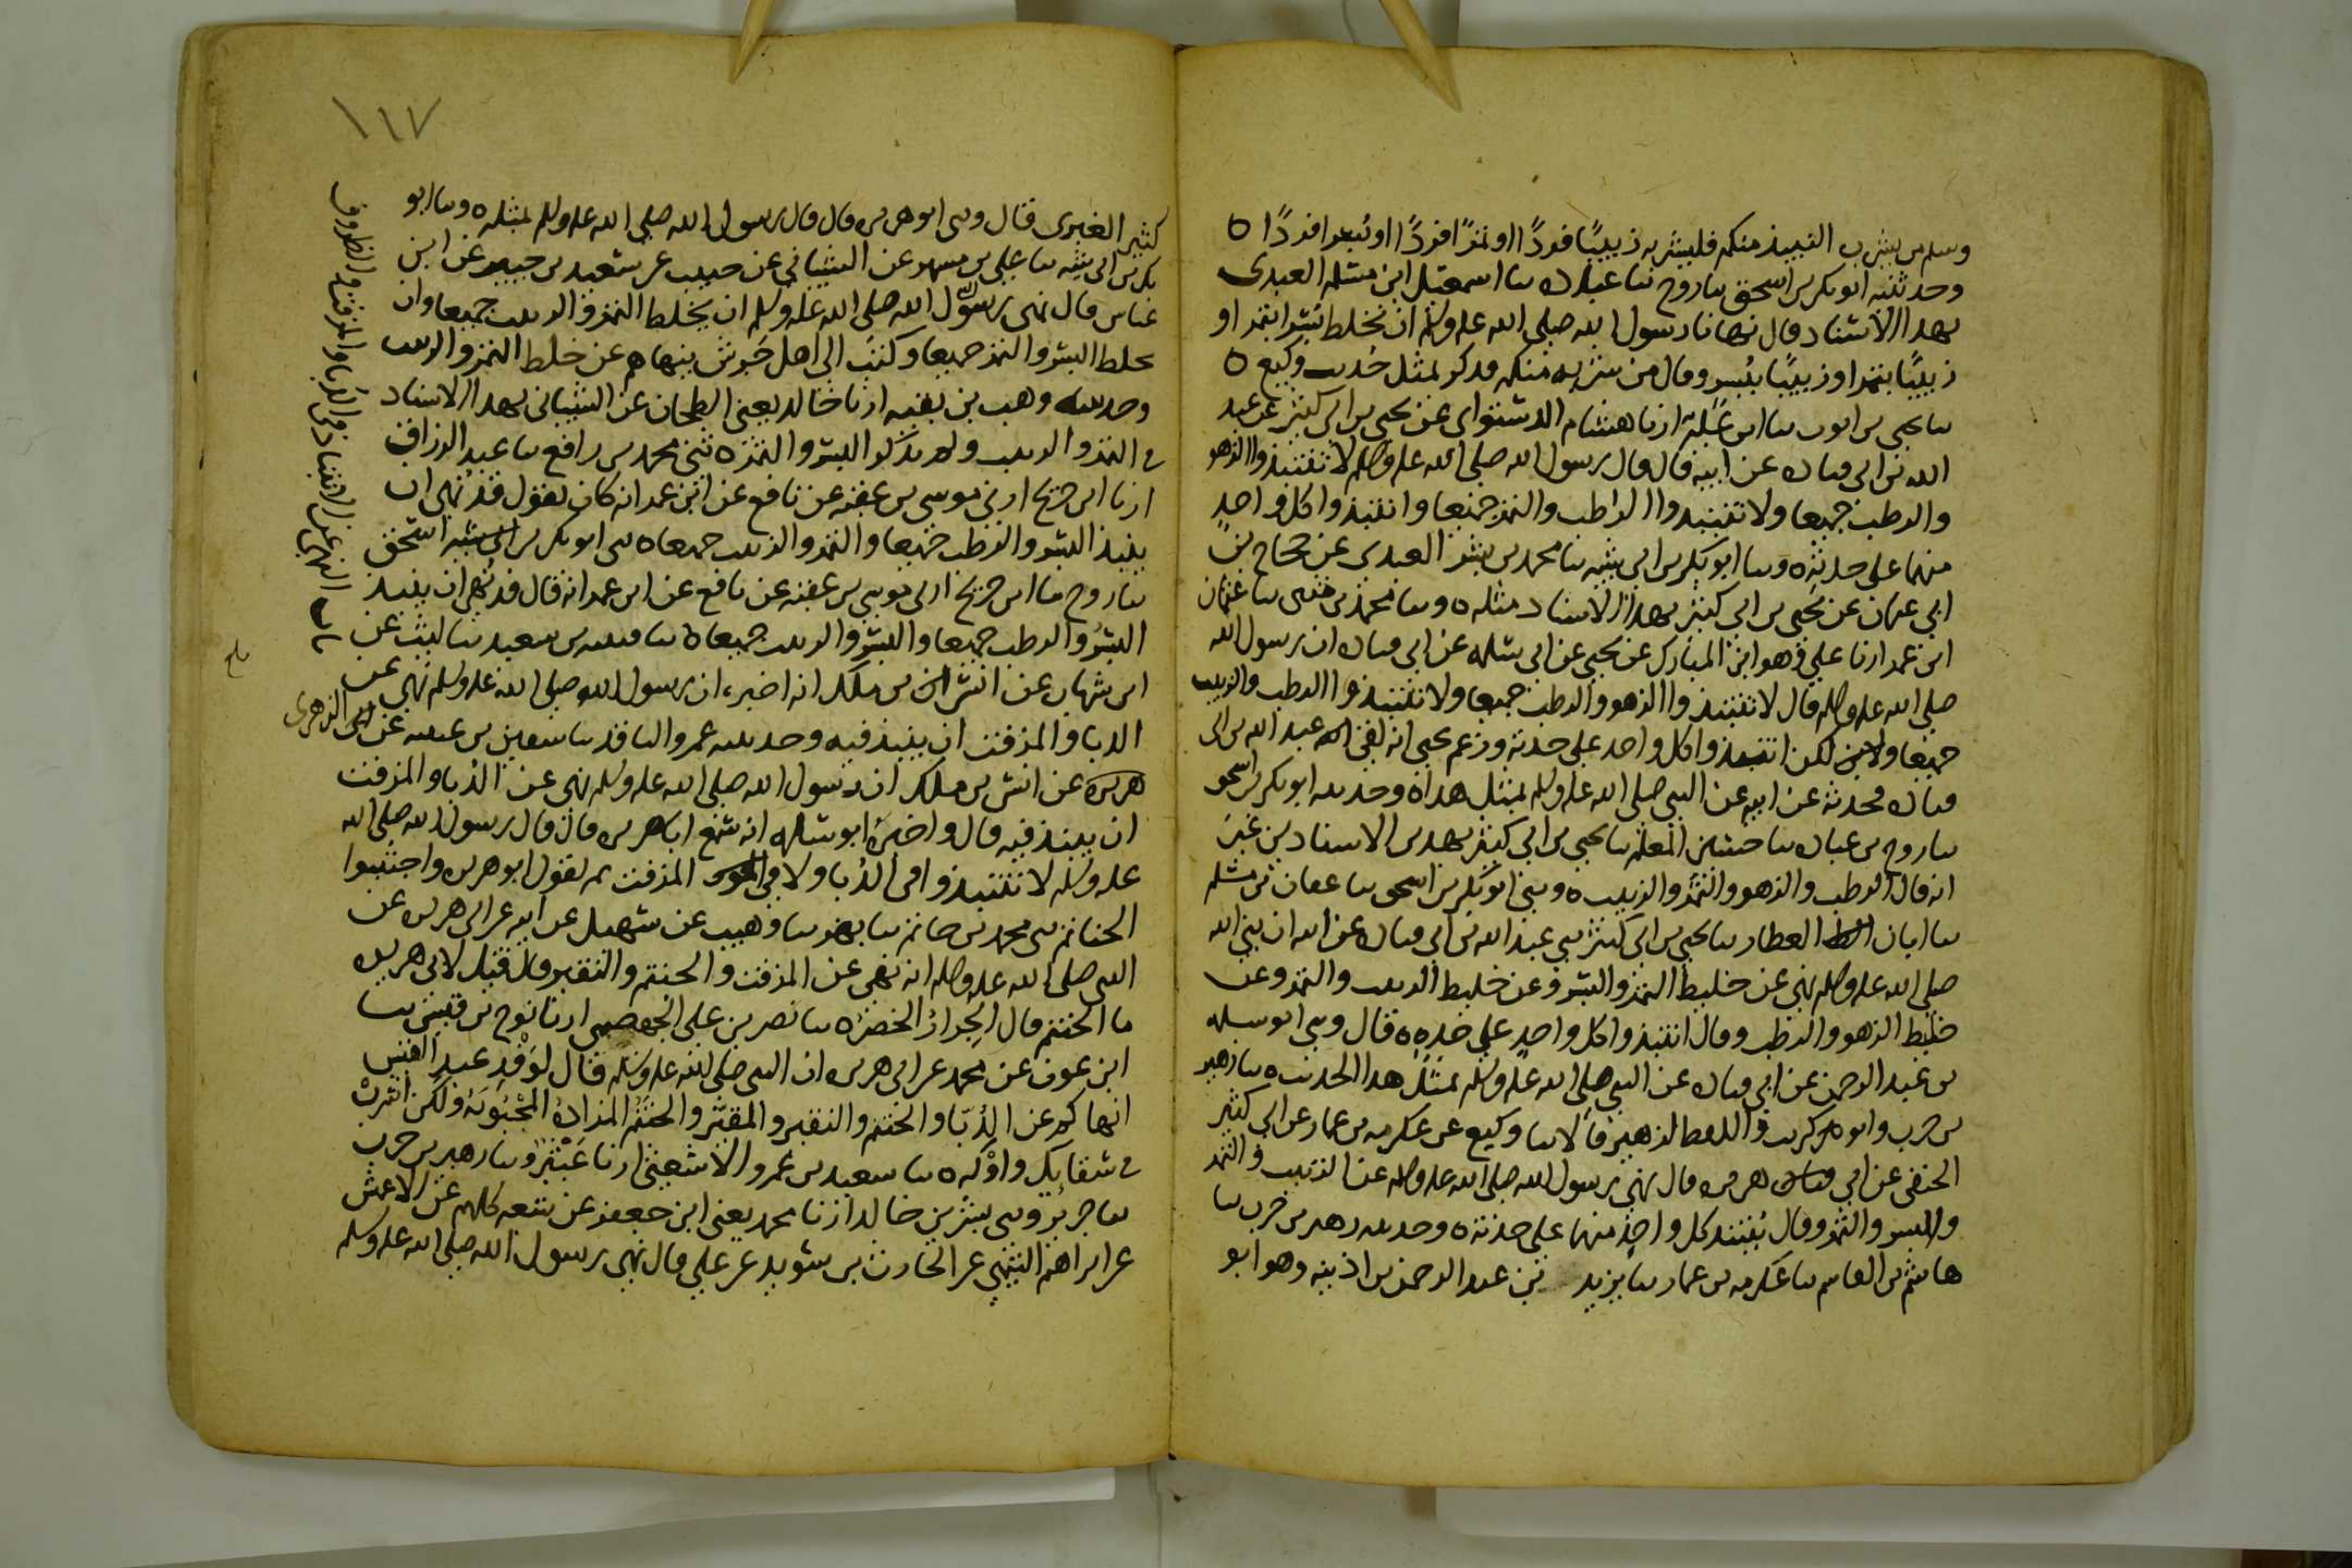 وسلم من يشرب النبيذ منكم فليشربه زبيبًا فردًا او تمرًا فردًا او بسرا فردًا ه
وحدثنيه ابو بكر بن اسحق نا روح بن عبادة نا اسمعيل ابن مسلم العبدى
بهذا الاسناد قال نهانا رسول الله صلى الله عليه وسلم ان نخلط بسرا بتمر او
زبيبًا بتمر او زبيبًا ببسر وقال من شربه منكم فذكر بمثل حديث وكيع ه
نا يحيى بن ايوب نا ابن علية انا هشام الدستوائى عن يحيى بن ابى كثير عن عبد
الله بن ابى قتادة عن ابيه قال قال رسول الله صلى الله عليه وسلم لا تنتبذوا الزهو
والرطب جميعا ولا تنتبذوا الرطب والتمر جميعا وانتبذوا كل واحد
منهما على حدته ه ونا ابو بكر بن ابى شيبه نا محمد بن بشر العبدى عن حجاج بن
ابى عثمان عن يحيى بن ابى كثير بهذا الاسناد مثله ه ونا محمد بن مثنى نا عثمان
ابن عمر انا على وهو ابن المبارك عن يحيى عن ابى سلمه عن ابى قتادة ان رسول الله
صلى الله عليه وسلم قال لا تنتبذوا الزهو والرطب جميعا ولا تنتبذوا الرطب والزبيب
جميعا ولكن انتبذوا كل واحد على حدته وزعم يحيى انه لقى عبد الله بن ابى
قتادة فحدثه عن ابيه عن النبى صلى الله عليه وسلم بمثل هذا ه وحدثنيه ابو بكر بن اسحق
نا روح بن عبادة نا حسين المعلم نا يحيى بن ابى كثير بهذين الاسنادين غير
انه قال الرطب والزهو والتمر والزبيب ه وثنى ابو بكر بن اسحق نا عفان بن مسلم
نا ابان العطار نا يحيى بن ابى كثير ثنى عبد الله بن ابى قتادة عن ابيه ان نبى الله
صلى الله عليه وسلم نهى عن خليط التمر والبسر وعن خليط الزبيب والتمر وعن
خليط الزهو والرطب وقال انتبذوا كل واحد على حده ه قال وثنى ابو سلمه
بن عبد الرحمن عن ابى قتادة عن النبى صلى الله عليه وسلم بمثل هذا الحديث ه نا زهير
بن حرب وابو كريب واللفظ لزهير قالا نا وكيع عن عكرمه بن عمار عن ابى كثير
الحنفى عن ابى هريره قال نهى رسول الله صلى الله عليه وسلم عن الزبيب والتمر
والبسر والتمر وقال ينتبذ كل واحد منهما على حدته ه وحدثنيه زهير بن حرب نا
هاشم بن القاسم نا عكرمه بن عمار نا يزيد بن عبد الرحمن بن اذينه وهو ابو
١١٧
كثير الغبرى قال ثنى ابو هريره قال قال رسول الله صلى الله عليه وسلم بمثله ه ونا ابو
بكر بن ابى شيبه نا على بن مسهر عن الشيبانى عن حبيب عن سعيد بن جبير عن ابن
عباس قال نهى رسول الله صلى الله عليه وسلم ان يخلط التمر والزبيب جميعا وان
يخلط البسر والتمر جميعا وكتب الى اهل جرش ينهاهم عن خلط التمر والزبيب
وحدثنيه وهب بن بقيه انا خالد يعنى الطحان عن الشيبانى بهذا الاسناد
فى التمر والزبيب ولم يذكر البسر والتمر ه ثنى محمد بن رافع نا عبد الرزاق
انا ابن جريج اخبرنى موسى بن عقبه عن نافع عن ابن عمر انه كان يقول قد نهى ان
ينبذ البسر والرطب جميعا والتمر والزبيب جميعا ه ثنى ابو بكر بن اسحق
نا روح نا ابن جريج اخبرنى موسى بن عقبه عن نافع عن ابن عمر انه قال قد نهى ان ينبذ
البسر والرطب جميعا والتمر والزبيب جميعا ه نا قتيبه بن سعيد نا ليث عن
ابن شهاب عن انس بن ملك انه اخبره ان رسول الله صلى الله عليه وسلم نهى عن
الدبا والمزفت ان ينبذ فيه وحدثنيه عمرو الناقد نا سفين بن عيينه عن الزهرى
عن انس بن ملك ان رسول الله صلى الله عليه وسلم نهى عن الدبا والمزفت
ان ينبذ فيه قال واخبره ابو سلمه انه سمع ابا هريره قال قال رسول الله صلى الله
عليه وسلم لا تنتبذوا فى الدُّبا ولا فى المزفت ثم يقول ابو هريره واجتنبوا
الحناتم ثنى محمد بن حاتم نا بهز نا وهيب عن سهيل عن ابيه عن ابى هريره عن
النبى صلى الله عليه وسلم انه نهى عن المزفت والحنتم والنقير قال قيل لابى هريره
ما الحنتم قال الجرار الخضر ه نا نصر بن على الجهضمى انا نوح بن قيس نا
ابن عون عن محمد عن ابى هريره ان النبى صلى الله عليه وسلم قال لوَفْدِ عبد القيس
انهاكم عن الدُبّا والحنتم والنقير والمقيّر والحنتم المزادة المجبُوبَة ولكن اشرب
فى سقايك واوْكه ه نا سعيد بن عمرو الاشعثى انا عَبْثر ونا زهير بن حرب
نا جرير وثنى بشر بن خالد انا محمد يعنى ابن جعفر عن شعبه كلهم عن الاعمش
عن ابراهيم التيمى عن الحارث بن سويد عن على قال نهى رسول الله صلى الله عليه وسلم
باب النهى عن الانتباذ فى الدُّبا والمزفت والظروف